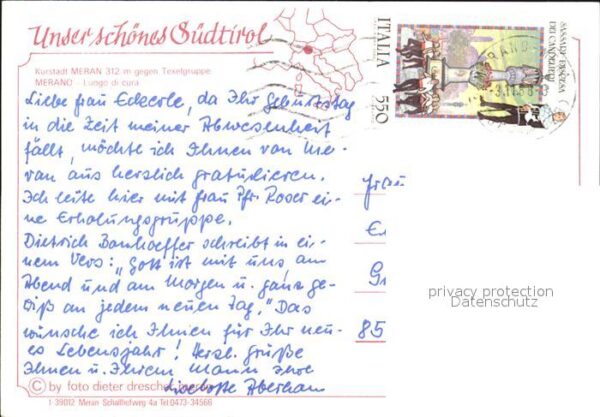 Unser schönes Südtirol
Kurstadt MERAN 312 m gegen Texelgruppe
MERANO - Luogo di cura
Liebe Frau Eckerle, da Ihr Geburtstag
in die Zeit meiner Abwesenheit
fällt, möchte ich Ihnen von Me-
ran aus herzlich gratulieren.
Ich leite hier mit Frau Pfr. Roser ei-
ne Erholungsgruppe.
Dietrich Bonhoeffer schreibt in ei-
nem Vers: „Gott ist mit uns am
Abend und am Morgen u. ganz ge-
wiß an jedem neuen Tag." Das
wünsche ich Ihnen für Ihr neu-
es Lebensjahr! Herzl. Grüße
Ihnen u. Ihrem Mann Ihre
Aberham
© by foto dieter drescher
I 39012 Meran Schallhofweg 4a Tel 0473-34566
ITALIA 550
SASSARI - FARADDA
DEI CANDELIERI
Frau
85
privacy protection
Datenschutz